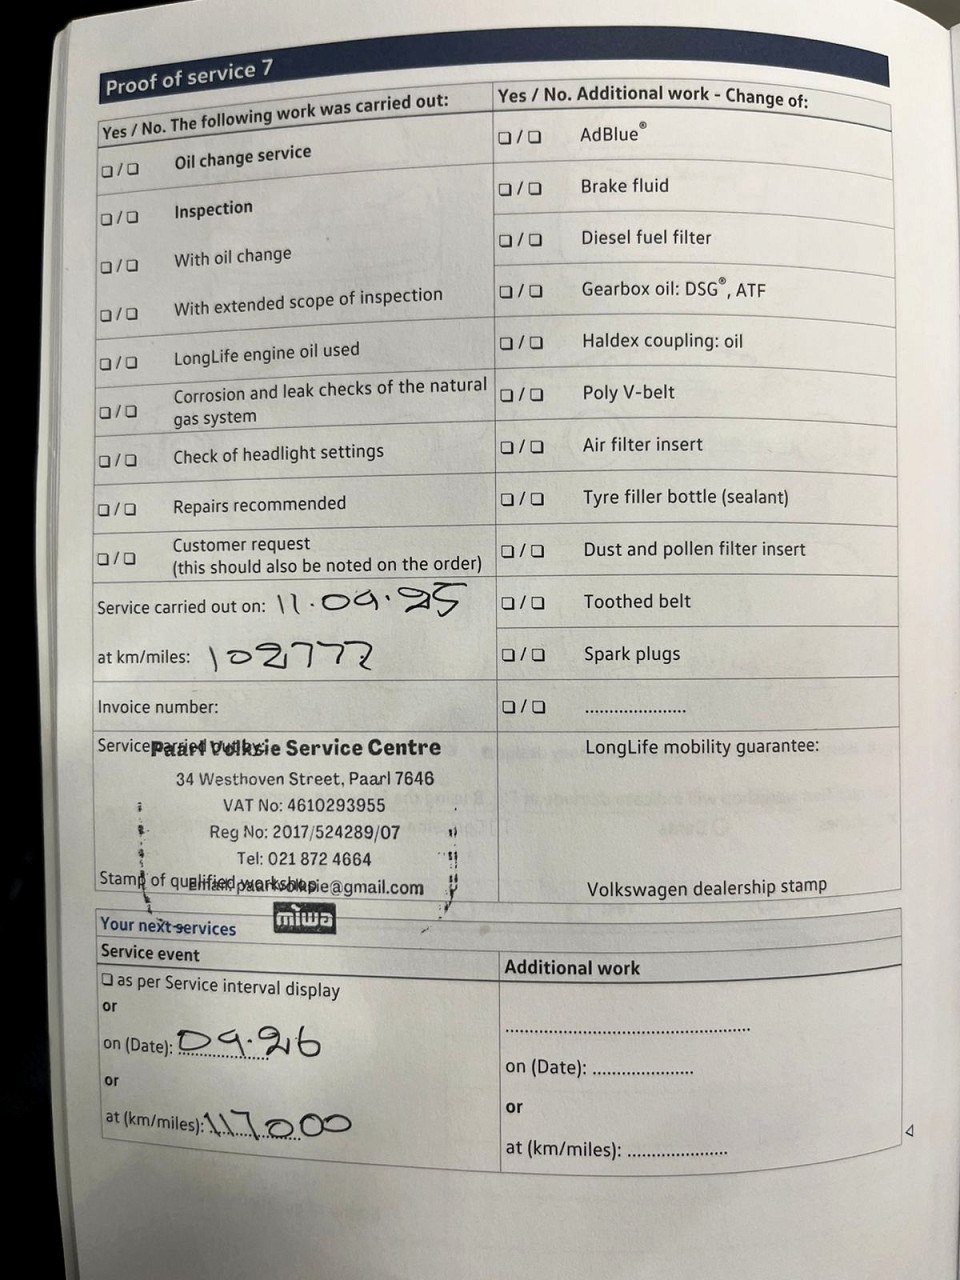 Proof of service 7
Yes / No. The following work was carried out:
❏ / ❏ Oil change service
❏ / ❏ Inspection
❏ / ❏ With oil change
❏ / ❏ With extended scope of inspection
❏ / ❏ LongLife engine oil used
❏ / ❏ Corrosion and leak checks of the natural
gas system
❏ / ❏ Check of headlight settings
❏ / ❏ Repairs recommended
❏ / ❏ Customer request
(this should also be noted on the order)
Service carried out on: 11.09.25
at km/miles: 102777
Invoice number:
Service carried out by:
Paarl Volksie Service Centre
34 Westhoven Street, Paarl 7646
VAT No: 4610293955
Reg No: 2017/524289/07
Tel: 021 872 4664
Email: paarlvolksie@gmail.com
Stamp of qualified workshop
miwa
Yes / No. Additional work - Change of:
❏ / ❏ AdBlue®
❏ / ❏ Brake fluid
❏ / ❏ Diesel fuel filter
❏ / ❏ Gearbox oil: DSG®, ATF
❏ / ❏ Haldex coupling: oil
❏ / ❏ Poly V-belt
❏ / ❏ Air filter insert
❏ / ❏ Tyre filler bottle (sealant)
❏ / ❏ Dust and pollen filter insert
❏ / ❏ Toothed belt
❏ / ❏ Spark plugs
❏ / ❏ .....................
LongLife mobility guarantee:
Volkswagen dealership stamp
Your next services
Service event
❏ as per Service interval display
or
on (Date): 09.26
or
at (km/miles): 117000
Additional work
..................................................
on (Date): .....................
or
at (km/miles): .....................